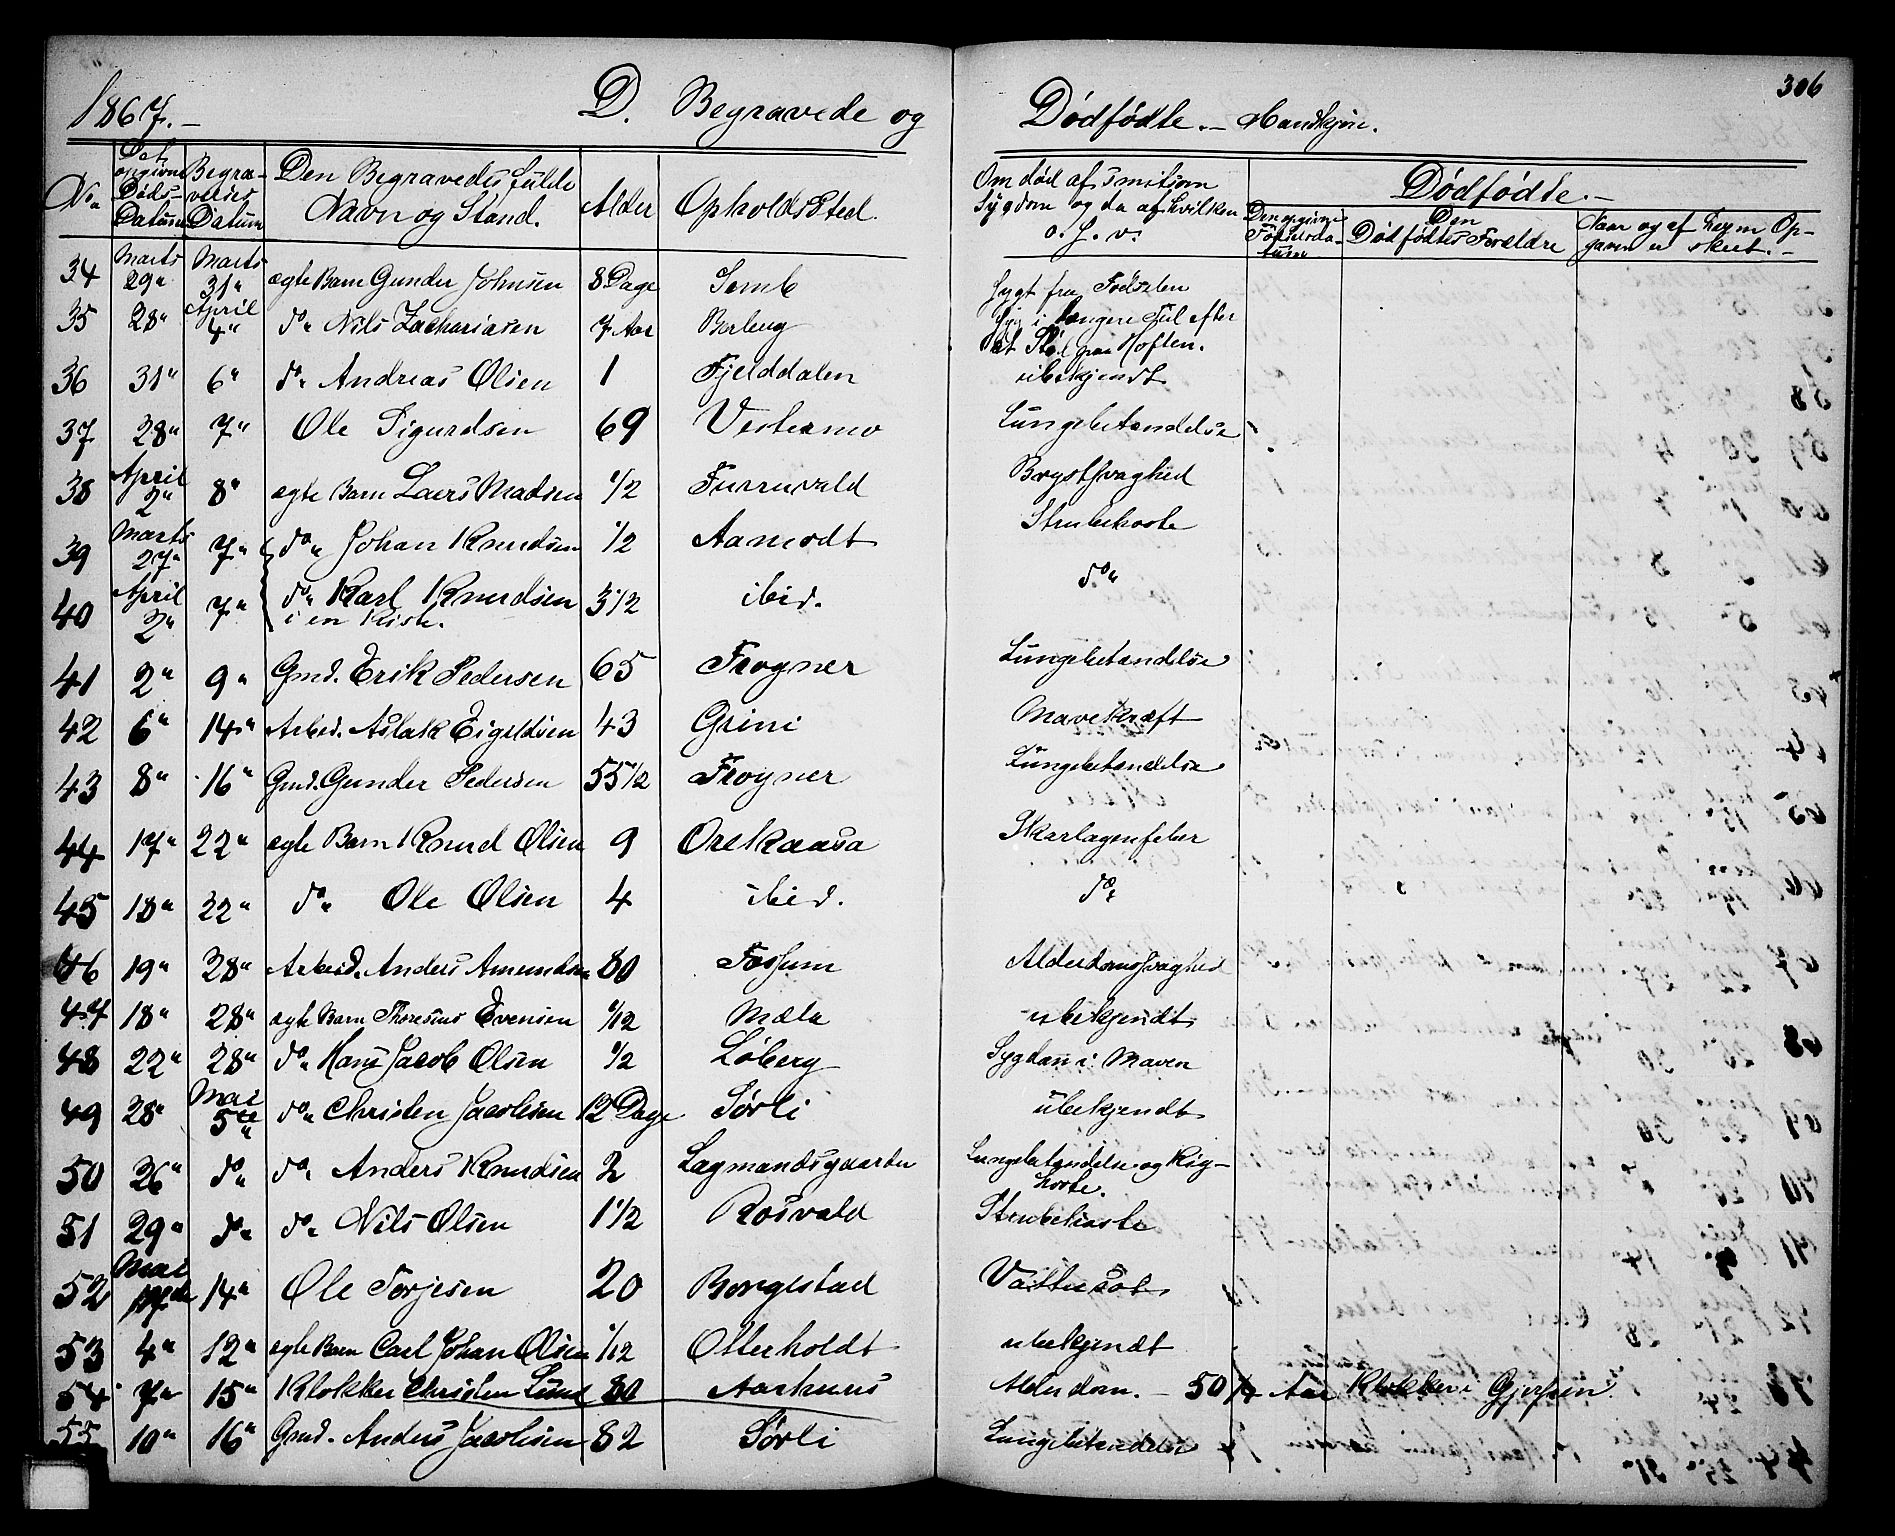 306
1867.- D. Begravede og Dødfødte.- Mandkjøn.
No. Det opgivne Døds-Datum Begravelses Datum Den Begravedes fulde Navn og Stand. Alder OpholdsSted. Om død af smitsom Sygdom og da af hvilken o.s.v. Dødfødte.-
Den opgivne Fødselsdatum Den Dødfødtes Foreldre Naar og af hvem Opgaven er skeet.-
34 Marts 29" Marts 31" ægte Barn Gunder Johnsen 8 Dage Semb Sygt fra Fødselen
35 28" April 4" do. Nils Zachariasen 7 Aar Borberg Syg i længere Tid efter
et Stød paa Hoften.
36 31" 6" do. Andreas Olsen 1 Fjelddalen ubekjendt
37 28" 7" Ole Sigurdsen 69 Vestermo Lungebetændelse
38 April 2" 8" ægte Barn Laers Madsen 1/2 Furruvald Brystsvaghed
39 Marts 27" 7" do. Johan Knudsen 1/2 Aamodt Strubehoste
40 April 2" 7" do. Karl Knudsen 3 1/2 ibid. do.
i en Kiste.
41 2" 9" Gmd. Erik Pedersen 65 Frogner Lungebetændelse
42 6" 14" Arbeid. Aslak Eigildsen 43 Grini Mavekræft
43 8" 16" Gmd. Gunder Pedersen 55 1/2 Frogner Lungebetændelse
44 17" 22" ægte Barn Knud Olsen 9 Orekaasa Skarlagenfeber
45 18" 22" do. Ole Olsen 4 ibid. do.
46 19" 28" Arbeid. Anders Amundsen 80 Fossum Alderdomssvaghed
47 18" 28" ægte Barn Thoresius Evensen 1/12 Mæla ubekjendt
48 22" 28" do. Hans Jacob Olsen 1/2 Løberg Sygdom i Maven
49 28" Mai 5te do. Christen Jacobsen 12 Dage Sørli ubekjendt
50 26" do. do. Anders Knudsen 2 Lagmandsgaarden Lungebetændelse og Kighoste.
51 29" do. do. Nils Olsen 1 1/2 Rosvald Strubehoste
52 Mai 14" Ole Torjesen 20 Borgestad Vattersot
53 4" 12" ægte Barn Carl Johan Olsen 1/12 Otterholdt ubekjendt
54 7" 15" Klokker Christen Lund 80 Aarhuus Alderdom. - 50 1/4 Aar Klokker i Gjerpen.
55 10" 16" Gmd. Anders Jacobsen 82 Sørli Lungebetændelse